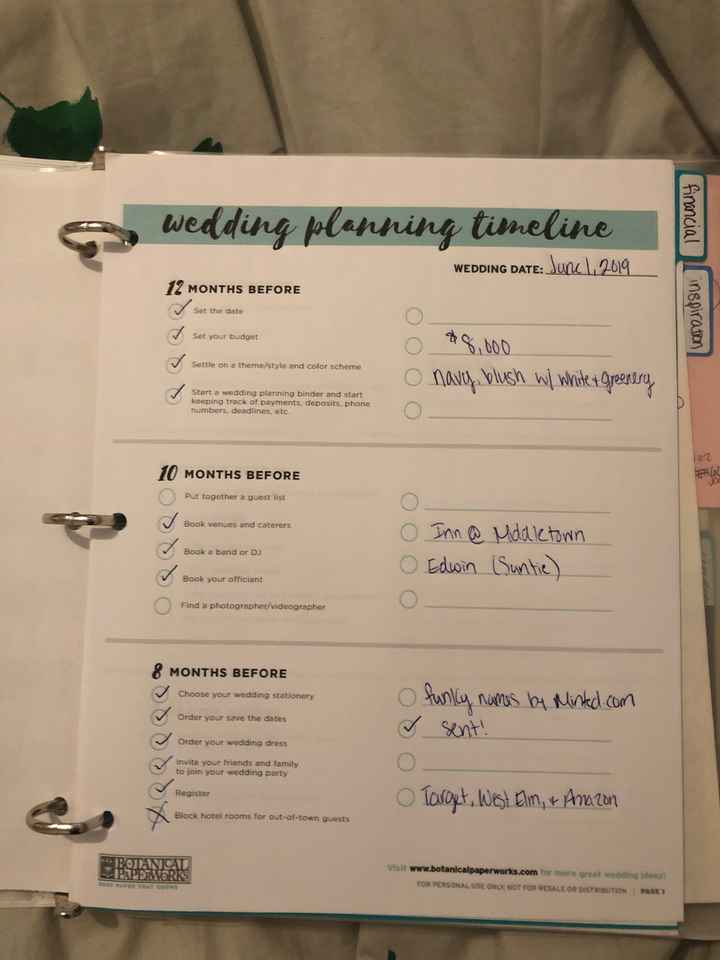 wedding planning timeline
WEDDING DATE: June 1, 2019
12 MONTHS BEFORE
Set the date
Set your budget
$8,000
Settle on a theme/style and color scheme
navy, blush w/ white + greenery
Start a wedding planning binder and start
keeping track of payments, deposits, phone
numbers, deadlines, etc.
10 MONTHS BEFORE
Put together a guest list
Book venues and caterers
Inn @ Middletown
Book a band or DJ
Edwin (Suntie)
Book your officiant
Find a photographer/videographer
8 MONTHS BEFORE
Choose your wedding stationery
funky names by Minted.com
Order your save the dates
Sent!
Order your wedding dress
Invite your friends and family
to join your wedding party
Register
Target, West Elm, + Amazon
Block hotel rooms for out-of-town guests
BOTANICAL
PAPERWORKS
SEED PAPER THAT GROWS
Visit www.botanicalpaperworks.com for more great wedding ideas!
FOR PERSONAL USE ONLY, NOT FOR RESALE OR DISTRIBUTION | PAGE 1
financial
inspiration